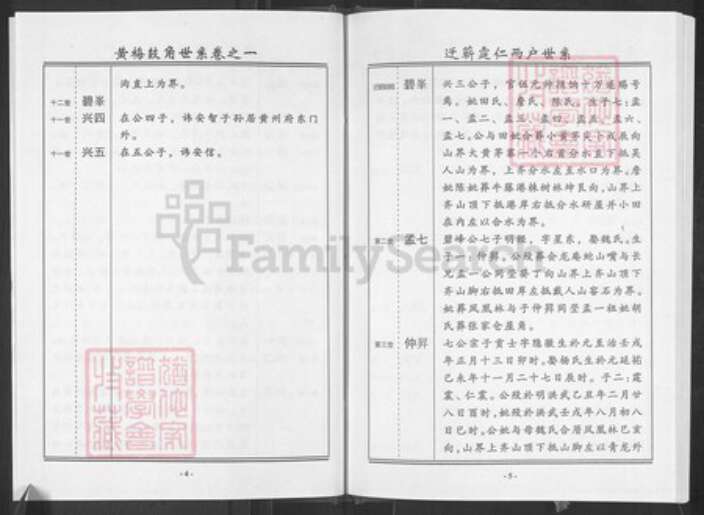 黄梅鼓角世系卷之一
沟直上为界。
十二世 碧峯
十一世 兴四 在公四子，讳安智子孙居黄州府东门
外。
十一世 兴五 在五公子，讳安信。
-4-
迁蕲霆仁两户世系
碧峯 兴三公子，官伍元帅
角。姚田氏、詹氏、陈氏。生子七：孟
一、孟二、孟三、孟四、孟五、孟六、
孟七。公与田妣合葬小黄茅尖下戌辰向
人山为界，上齐分水左至水口为界。詹
妣陈妣葬牛藤港株树林坤艮向，山界上
齐山顶下抵港岸右抵分水研屋并小田
在内左以合水为界。
第二世 孟七 碧峰公七子明经，字星东，娶魏氏。生
子一：仲昇。公殁葬会龙庵蛇山嘴与长
兄孟一公同茔癸丁向山界上齐山顶下
齐山脚右抵田岸左抵戴人山窖石为界。
妣葬凤凰林与子仲昇同茔孟一祖妣胡
氏葬张家仓屋角。
第三世 仲昇 七公宗子贡士字隐徽生於元至治壬戌
年正月十三日卯时。娶杨氏生於元延祐
己未年十一月二十七日辰时。子二：霆
震、仁震。公殁於明洪武乙丑年二月廿
八日酉时。妣殁於洪武壬戌年八月初八
日巳时。公妣与母魏氏合厝凤凰林巳亥
向，山界上齐山顶下抵山脚左以青龙外
-5-
FamilySearch